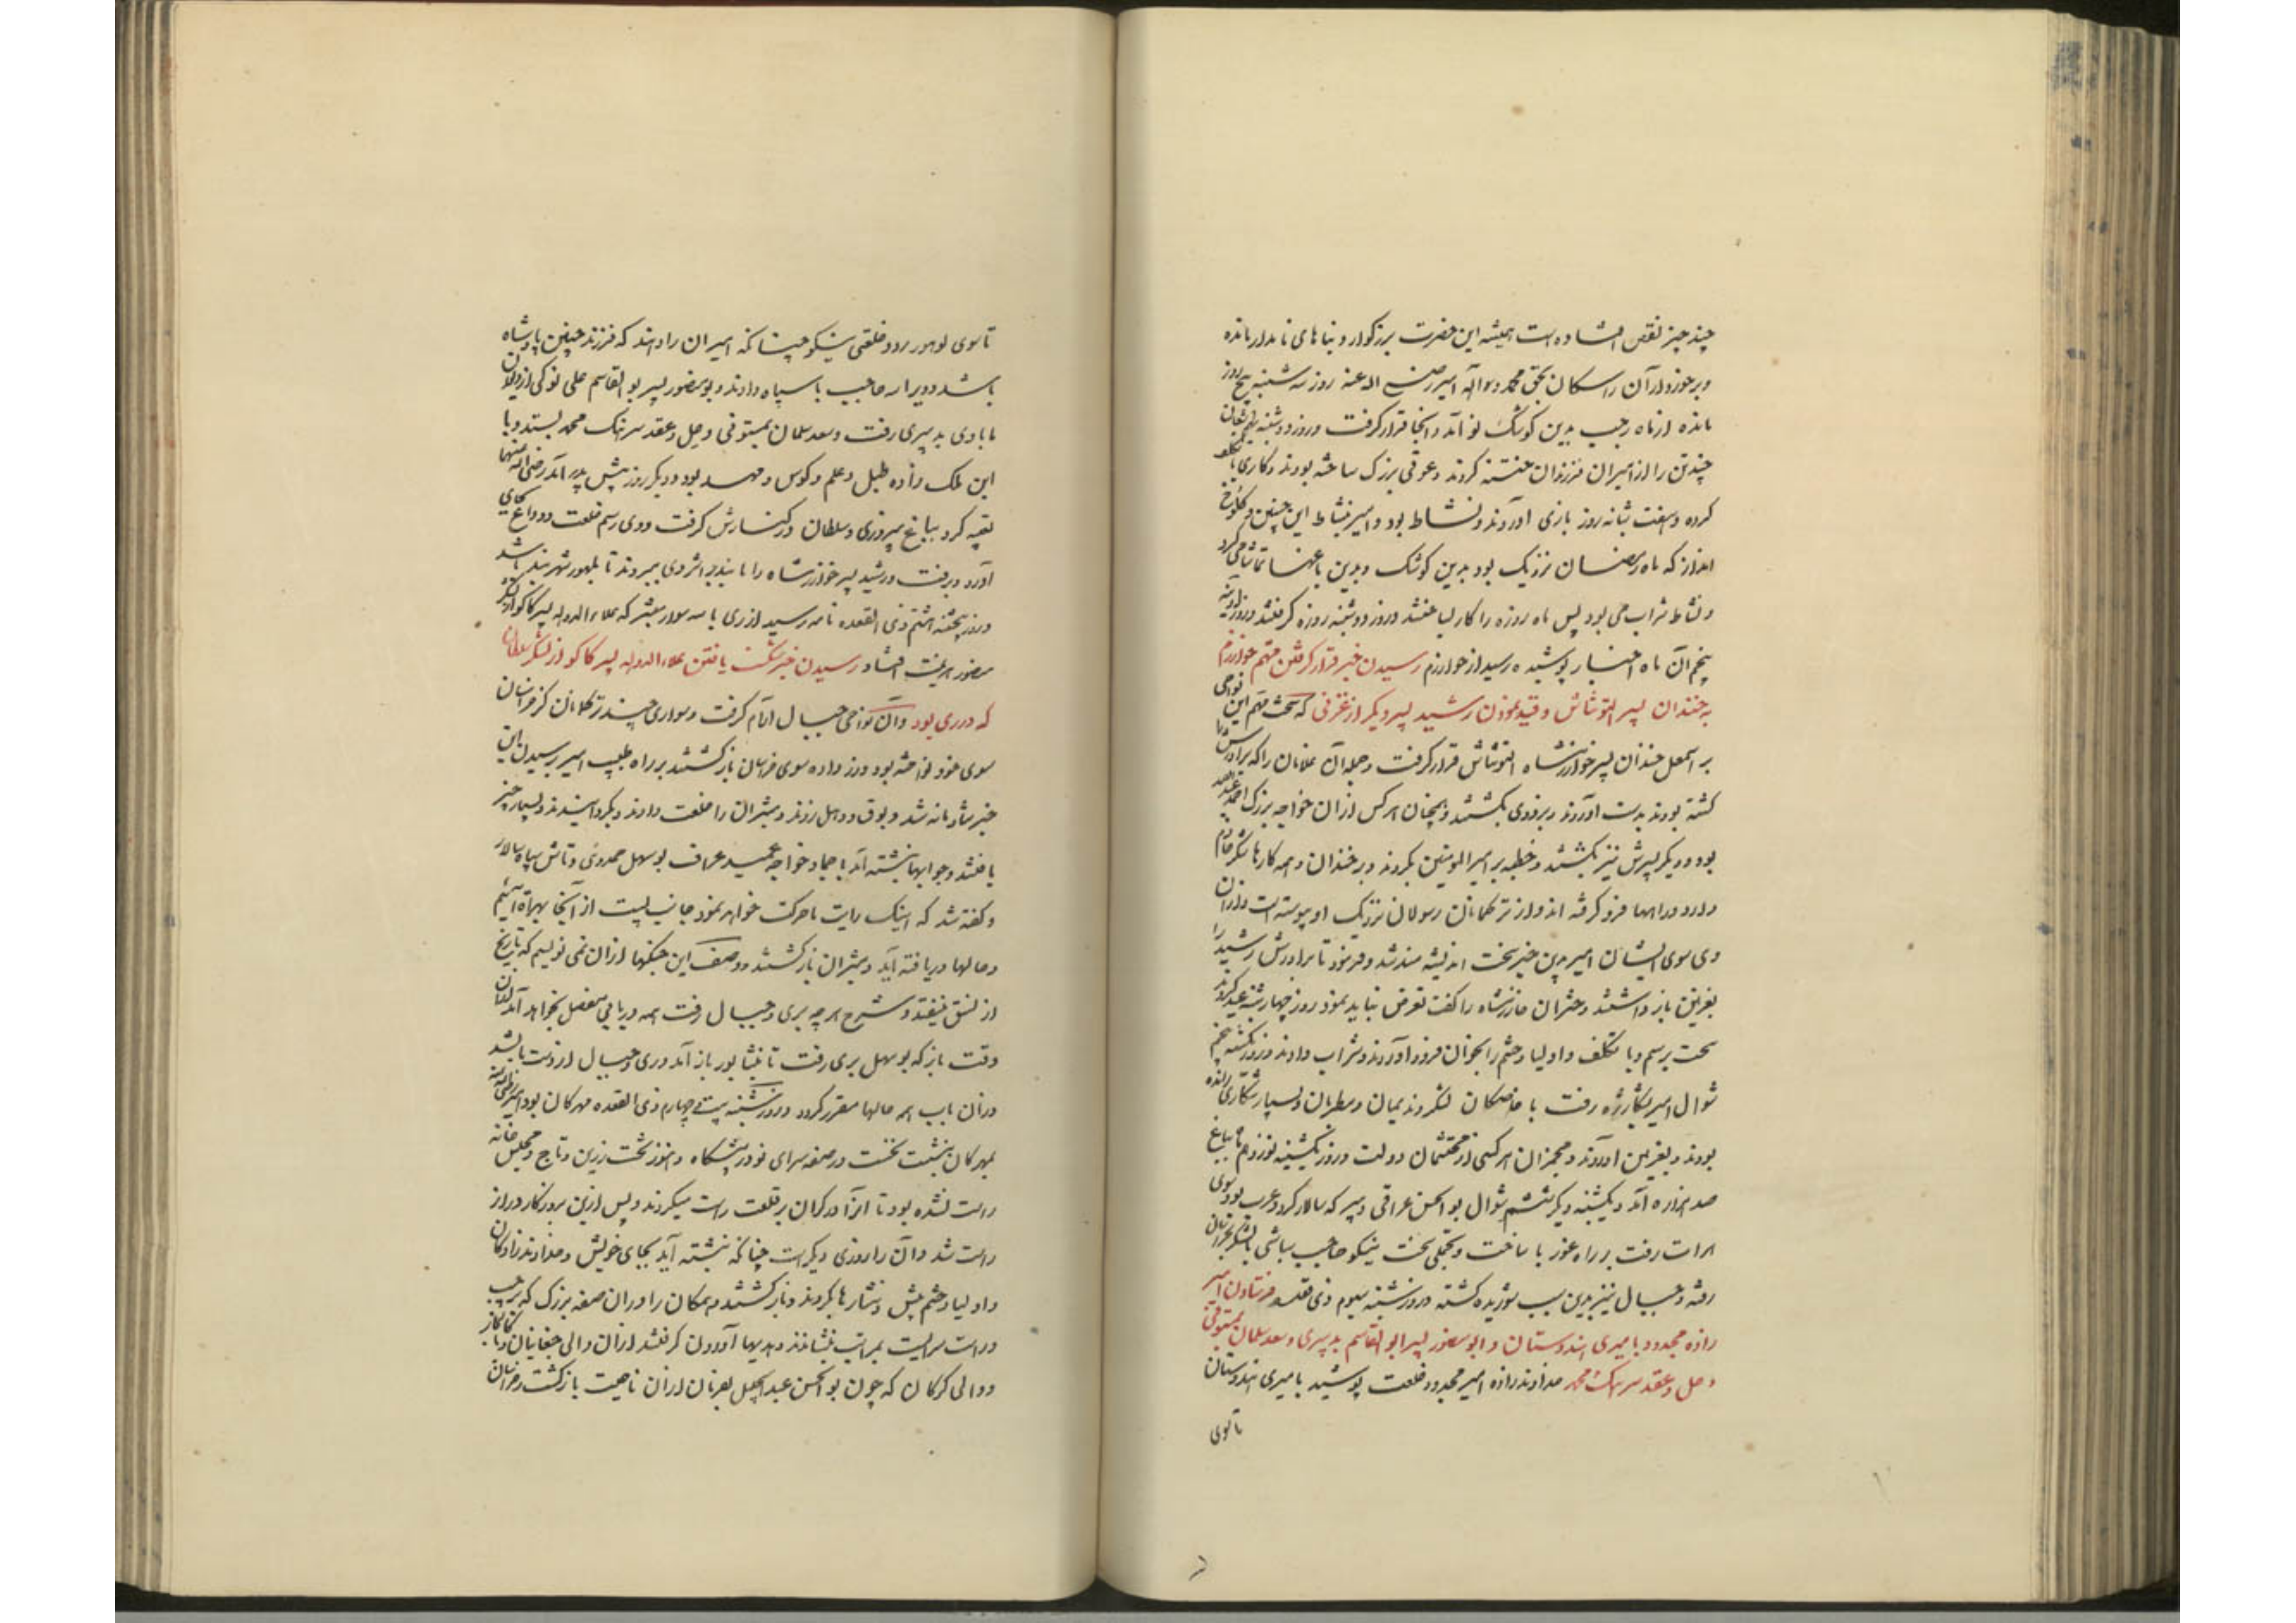 چند چیز نقص افتاده است همیشه این حضرت بزرگوار و بناهای نامدار مانده
و برخورداران راسکان بحق محمد و آله امیر رضی الله عنه روز سه شنبه پنج روز
مانده از ماه رجب بدین کوشک نو آمد و آنجا قرار گرفت و روز دوشنبه نهم شعبان
چند تن را از امیران فرزندان ختنه کردند و دعوتی بزرگ ساخته بودند و کاری با تکلف
کرده و هفت شبانه روز بازی آوردند و نشاط بود و امیر بنشاط این چنین و کلوخ
انداز که ماه رمضان نزدیک بود بدین کوشک و بدین باغها تماشا می کرد
و نشاط شراب می بود پس ماه روزه را کار بساختند و روز دوشنبه روزه گرفتند و روز آدینه
پنجم آن ماه اخبار پوشیده رسید از خوارزم رسیدن خبر قرار گرفتن مهم خوارزم
به خندان پسر التونتاش و قید نمودن رشید پسر دیگر از غزنی که سخت مهم این نواحی
بر اسمعیل خندان پسر خوارزمشاه التونتاش قرار گرفت و جمله آن غلامان را که برادرش را
کشته بودند بدست آوردند و بزودی بکشتند و همچنان هر کس از آن خواجه بزرگ احمد عبدالصمد
بود و دیگر پسرش نیز بکشتند و خطبه بر امیر المومنین بکردند و بر خندان و همه کارها شکر خادم
دارد و راهها فرو گرفته اند و از ترکمانان رسولان نزدیک او پیوسته است و از آن
وی سوی ایشان امیر بدین خبر سخت اندیشه مند شد و فرمود تا برادرش رشید را
بغزنین باز داشتند و دختران خوارزمشاه را گفت تعرض نباید نمود روز چهارشنبه عید کردند
سخت برسم و با تکلف و اولیا و حشم را بخوان فرود آوردند و شراب دادند و روز یکشنبه پنجم
شوال امیر بشکار ژه رفت با خاصگان لشکر و ندیمان و مطربان و بسیار شکاری رانده
بودند و بغزنین آوردند و مجمزان هر کسی از محتشمان دولت و روز یکشنبه نوزدهم بباغ
صد هزاره آمد و یکشنبه دیگر ششم شوال بوالحسن عراقی دبیر که سالار کرد و عرب بود سوی
هرات رفت بر راه غور با ساخت و تجملی سخت نیکو حاجب سباشی با لشکر بخراسان
رفته و جبال نیز بدین سبب شوریده گشته و روز شنبه سیوم ذی قعده فرستادن امیر
زاده مجدود بامیری هندوستان و ابو منصور پسر ابو القاسم بدبیری و سعد سلمان بمستوفی
و حل و عقد سرهنگ محمد خداوند زاده امیر مجدود خلعت پوشید بامیری هندوستان
تا سوی
تا سوی لوهور رود خلعتی نیکو چنانکه امیران را دهند که فرزند چنین پادشاه
باشد و ویرا سه حاجب با سپاه دادند و بو منصور پسر بو القاسم علی نوکی از دیوان
ما با وی بدبیری رفت و سعد سلمان بمستوفی و حل و عقد سرهنگ محمد بستد و با
این ملک زاده طبل و علم و کوس و مهد بود و دیگر روز پیش پدر آمد رضی الله عنهما
تعبیه کرده بباغ پیروزی و سلطان در کنارش گرفت و وی رسم خلعت و وداع بجای
آورد و برفت و رشید پسر خوارزمشاه را با بند بر اثر وی ببردند تا بلهور شهربند باشد
و روز پنجشنبه هشتم ذی القعده نامه رسید از ری با سه سوار مبشر که علاءالدوله پسر کاکو از لشکر
منصور هزیمت افتاد رسیدن خبر شکست یافتن علاءالدوله پسر کاکو از لشکر سلطان
که در ری بود و آن نواحی جبال آرام گرفت و سواری چند ترکمانان کز خراسان
سوی خود نواخته بود و زر داده سوی خراسان بازگشتند بر راه طبس امیر برسیدن این
خبر شادمانه شد و بوق و دهل زدند و مبشران را خلعت دادند و بگردانیدند و بسیار چیز
یافتند و جوابها نبشته آمد باحماد خواجه عمید عراق بو سهل حمدونی و تاش سپاه سالار
و گفته شد که اینک رایت ما حرکت خواهد نمود جانب بست از آنجا بهراة آئیم
و حالها دریافته آید و مبشران بازگشتند و وصف این جنگها ازان نمی نویسم که تاریخ
از نسق نیفتد و شرح هر چه بری و جبال رفت همه در بابی مفصل بخواهد آمد ازان
وقت باز که بوسهل بری رفت تا بنشابور باز آمد و ری و جبال از دست بشد
در آن باب همه حالها مقرر گردد و روز شنبه بیست و چهارم ذی القعده مهرگان بود امیر رضی الله عنه
بمهرگان بنشست نخست در صفه سرای نو در پیشگاه و هنوز تخت زرین و تاج و مجلس خانه
راست نشده بود تا آنرا زرگران بر قلعت راست میکردند و پس ازین بروزگار دراز
راست شد و آن را روزی دیگر است چنانکه نبشته آید بجای خویش و خداوند زادگان
و اولیا و حشم پیش و نثارها بکردند و بازگشتند و همگان را در آن صفه بزرگ که بر چپ
و راست سرایست بمراتب بنشاندند و هدیها آوردن گرفتند از آن والی چغانیان و باکالیجار
و والی گرگان که چون بو الحسن عبدالجلیل بفرمان از آن ناحیت بازگشت و خراسان